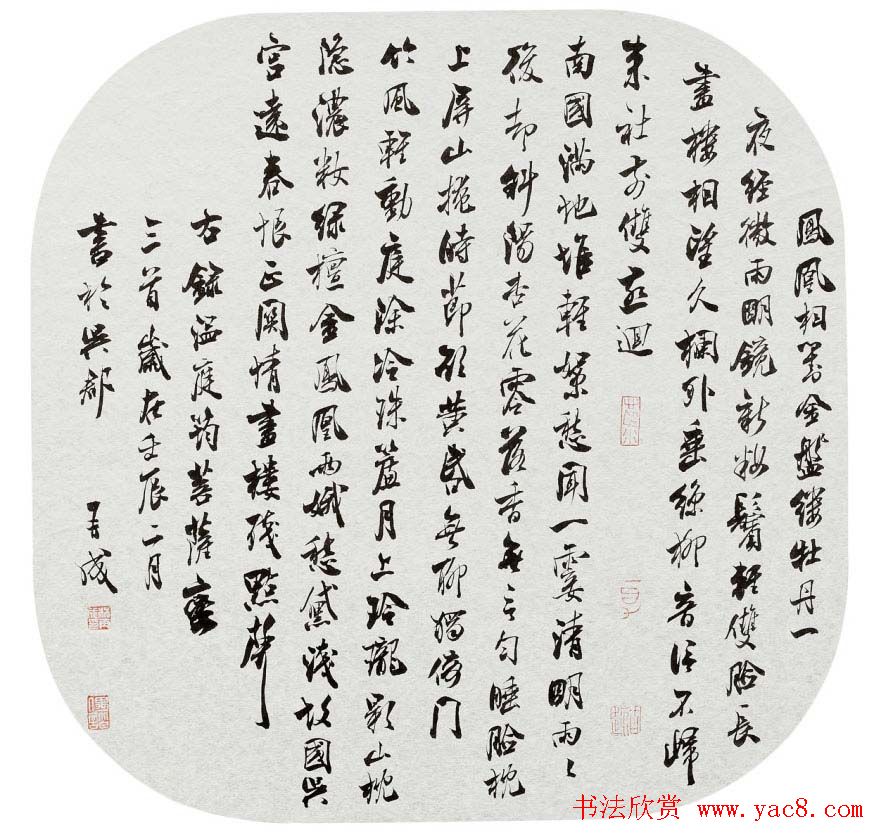 鳳凰相對金盤縷牡丹一
夜經微雨明鏡新妝鬢輕雙臉長
畫樓相望久欄外垂絲柳音信不歸
來社前雙燕迴
南國滿地堆輕絮愁聞一霎清明雨〻
後却斜陽杏花零落香無言勻睡臉枕
上屏山掩時節欲黃昏無聊獨倚門
竹風輕動庭除冷珠簾月上玲瓏影山枕
隱濃妝綠檀金鳳凰兩蛾愁黛淺故國吳
宮遠春恨正關情畫樓殘點聲
右錄溫庭筠菩薩蠻
三首歲在壬辰二月
書於吳郡 成
书法欣赏 www.yac8.com